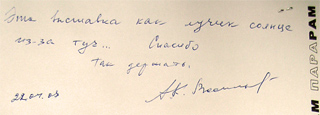 Эта выставка как лучик солнца
из-за туч... Спасибо
Так держать.
22.01.03
М ПАРАРАМ